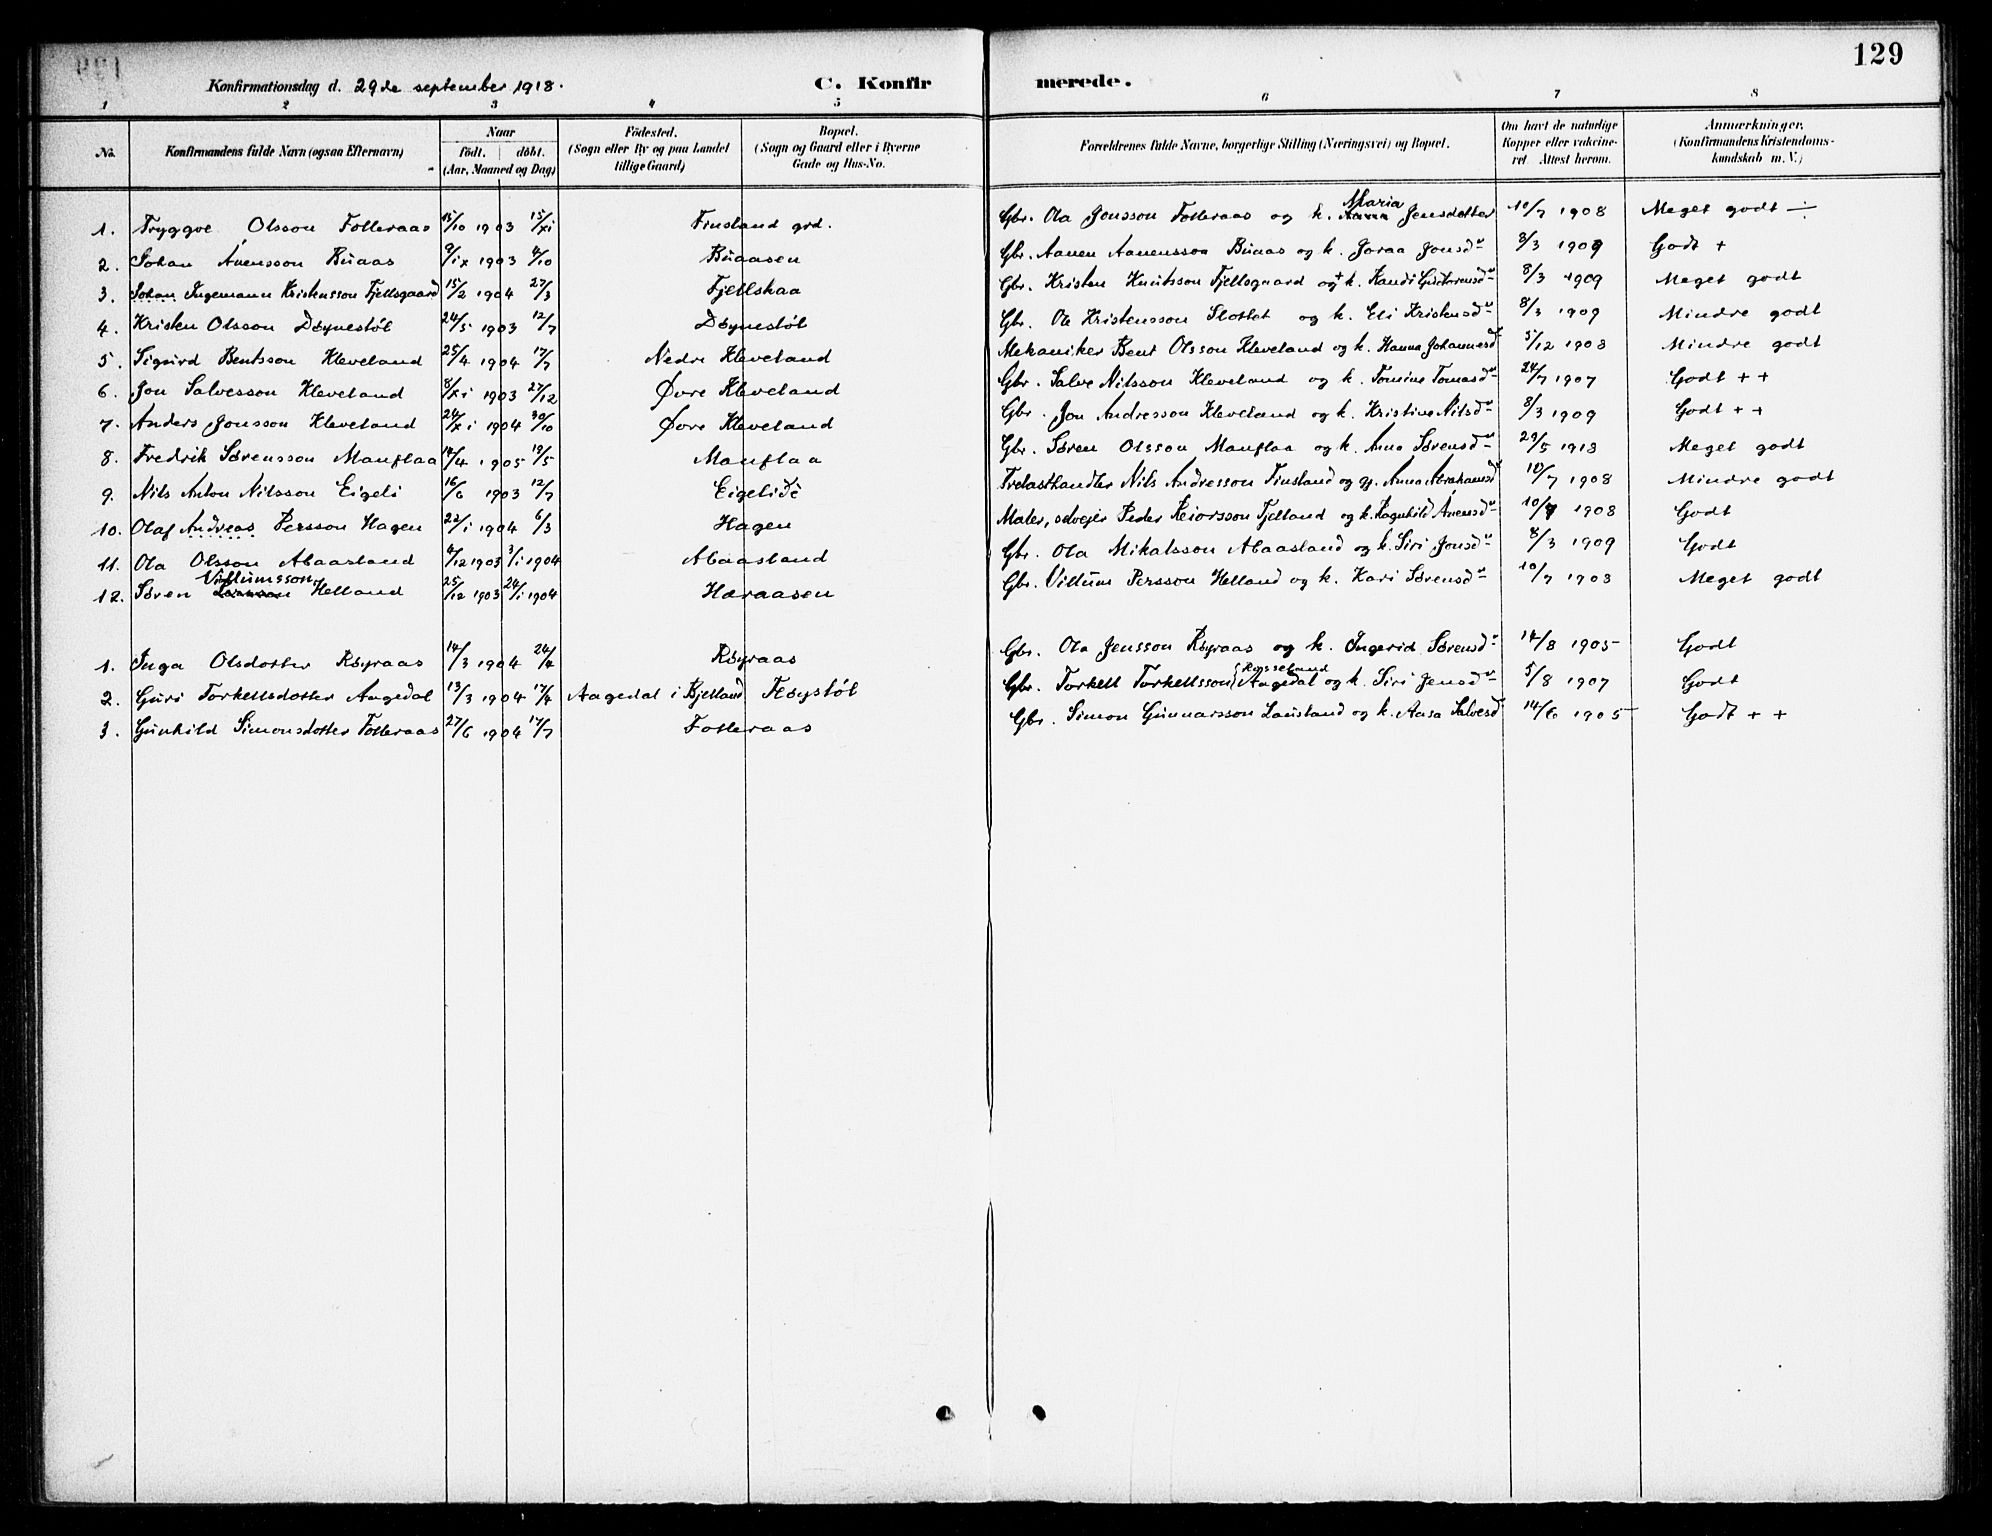 129
Konfirmationsdag d. 29de september 1918. C. Konfirmerede.
1 2 3 4 5 6 7 8
No. Konfirmandens fulde Navn (ogsaa Efternavn) Naar födt. döbt. (Aar, Maaned og Dag) Födested. (Sogn eller By og paa Landet tillige Gaard) Bopæl. (Sogn og Gaard eller i Byerne Gade og Hus-No. Forældrenes fulde Navne, borgerlige Stilling (Næringsvei) og Bopæl. Om havt de naturlige Kopper eller vakcineret. Attest herom. Anmærkninger. (Konfirmandens Kristendomskundskab m. V.)
1. Tryggve Olsson Folleraas 15/10 1903 15/xi Finsland grd. Gbr. Ola Jonsson Folleraas og k. Maria Jensdotter 10/7 1908 Meget godt ÷
2. Johan Ånensson Buaas 9/ix 1903 4/10 Buaasen Gbr. Aanen Aanensson Buaas og k. Joraa Jonsd 8/3 1909 Godt +
3. Johan Ingemann Kristensson Fjellsgaard 15/2 1904 27/3 Fjellskaa Gbr. Kristen Knutsson Fjellsgaard og + k. 8/3 1909 Meget godt
4. Kristen Olsson Döynestöl 24/5 1903 12/7 Döynestöl Gbr. Ole Kristensson Slottet og k. Eli Kristensd 8/3 1909 Mindre godt
5. Sigurd Bentsson Kleveland 25/4 1904 17/7 Nedre Kleveland Mekaniker Bent Olsson Kleveland og k. Hanna Johannesd 5/12 1908 Mindre godt
6. Jon Salvesson Kleveland 8/xi 1903 27/12 Øvre Kleveland Gbr. Salve Nilsson Kleveland og k. Tomine Tomasd 24/7 1907 Godt + +
7. Anders Jonsson Kleveland 24/xi 1904 30/10 Øvre Kleveland Gbr. Jon Andresson Kleveland og k. Kristine Nilsd 8/3 1909 Godt + +
8. Fredrik Sørensson Manflaa 14/4 1905 19/5 Manflaa Gbr. Søren Olsson Manflaa og k. Anna Sørensd 29/5 1918 Meget godt
9. Nils Anton Nilsson Eigeli 16/6 1903 12/7 Eigelidè Trelasthandler Nils Andresson Finsland og gj. Anna Abrahamsd 10/7 1908 Mindre godt
10. Olaf Andreas Persson Hagen 22/i 1904 6/3 Hagen Maler, selvejer Peder Reiorsson Fjelland og k. Ragnhild Ånensd 10/7 1908 Godt
11. Ola Olsson Abaasland 4/12 1903 3/i 1904 Abaasland Gbr. Ola Mikalsson Abaasland og k. Siri Jonsd 8/3 1909 Godt
12. Søren Villumsson Helland 25/12 1903 24/i 1904 Haraasen Gbr. Villum Persson Helland og k. Kari Sørensd 10/7 1908 Meget godt
1. Inga Olsdotter Röyraas 14/3 1904 24/4 Röyraas Gbr. Ola Jensson Röyraas og k. Ingerid Sørensd 14/8 1905 Godt
2. Guri Torkellsdotter Aagedal 13/3 1904 17/4 Aagedal i Bjelland Flöystöl Gbr. Torkell Torkellsson (Rosseland Aagedal og k. Siri Jensd 5/8 1907 Godt
3. Gunhild Simonsdotter Folleraas 27/6 1904 17/7 Folleraas Gbr. Simon Gunnarsson Lausland og k. Aasa Salvesd 14/6 1905 Godt + +